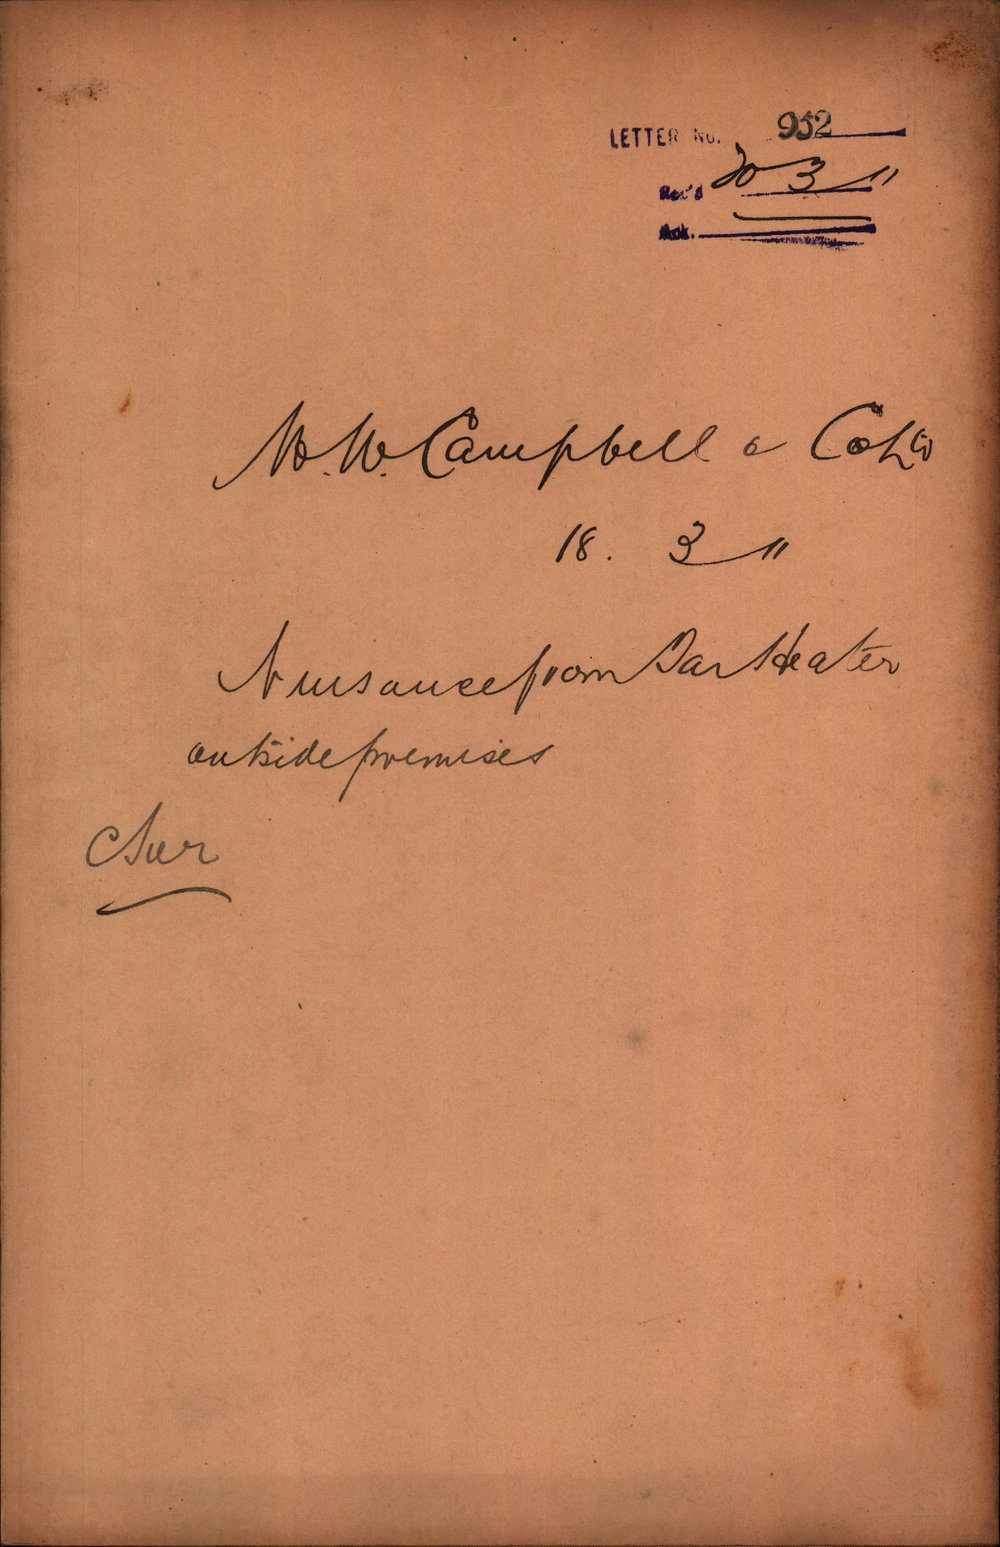 LETTER No. 952
Rec'd 20 3 11
Ack.
W. W. Campbell & Co Ld
18. 3 11
Nuisance from Tar Heater
outside premises
C Sur